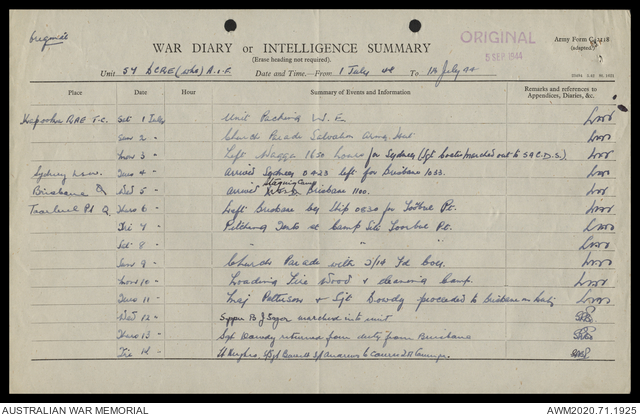 Original
ORIGINAL
5 SEP 1944
WAR DIARY or INTELLIGENCE SUMMARY
Army Form C.2118
(adapted)
(Erase heading not required).
Unit 54 DCRE (Wks) A.I.F. Date and Time—From 1 July 44 To 14 July 44
Place Date Hour Summary of Events and Information Remarks and references to Appendices, Diaries, &c.
Kapooka RAE T.C. Sat 1 July Unit Packing W.E.
Sun 2 " Church Parade Salvation Army Hut
Mon 3 " Left Wagga 1650 hours for Sydney (Sgt marched out to
Sydney N.S.W. Tues 4 " Arrived Sydney 0423 left for Brisbane 1033.
Brisbane Q Wed 5 " Arrived Staging Camp Brisbane 1100.
Toorbul Pt Q. Thurs 6 " Left Brisbane by Ship 0830 for Toorbul Pt.
Fri 7 " Pitching Tents at Camp Site Toorbul Pt.
Sat 8 " " "
Sun 9 " Church Parade with 2/14 Fd Coy.
Mon 10 " Loading Fire Wood & cleaning Camp.
Tues 11 " Maj Patterson & Sgt Dowdy proceeded to Brisbane on duty
Wed 12 " Sapper B J marched into unit
Thurs 13 " Sgt Dowdy returned from duty from Brisbane
Fri 14 " Lt Hughes,
AUSTRALIAN WAR MEMORIAL AWM2020.71.1925